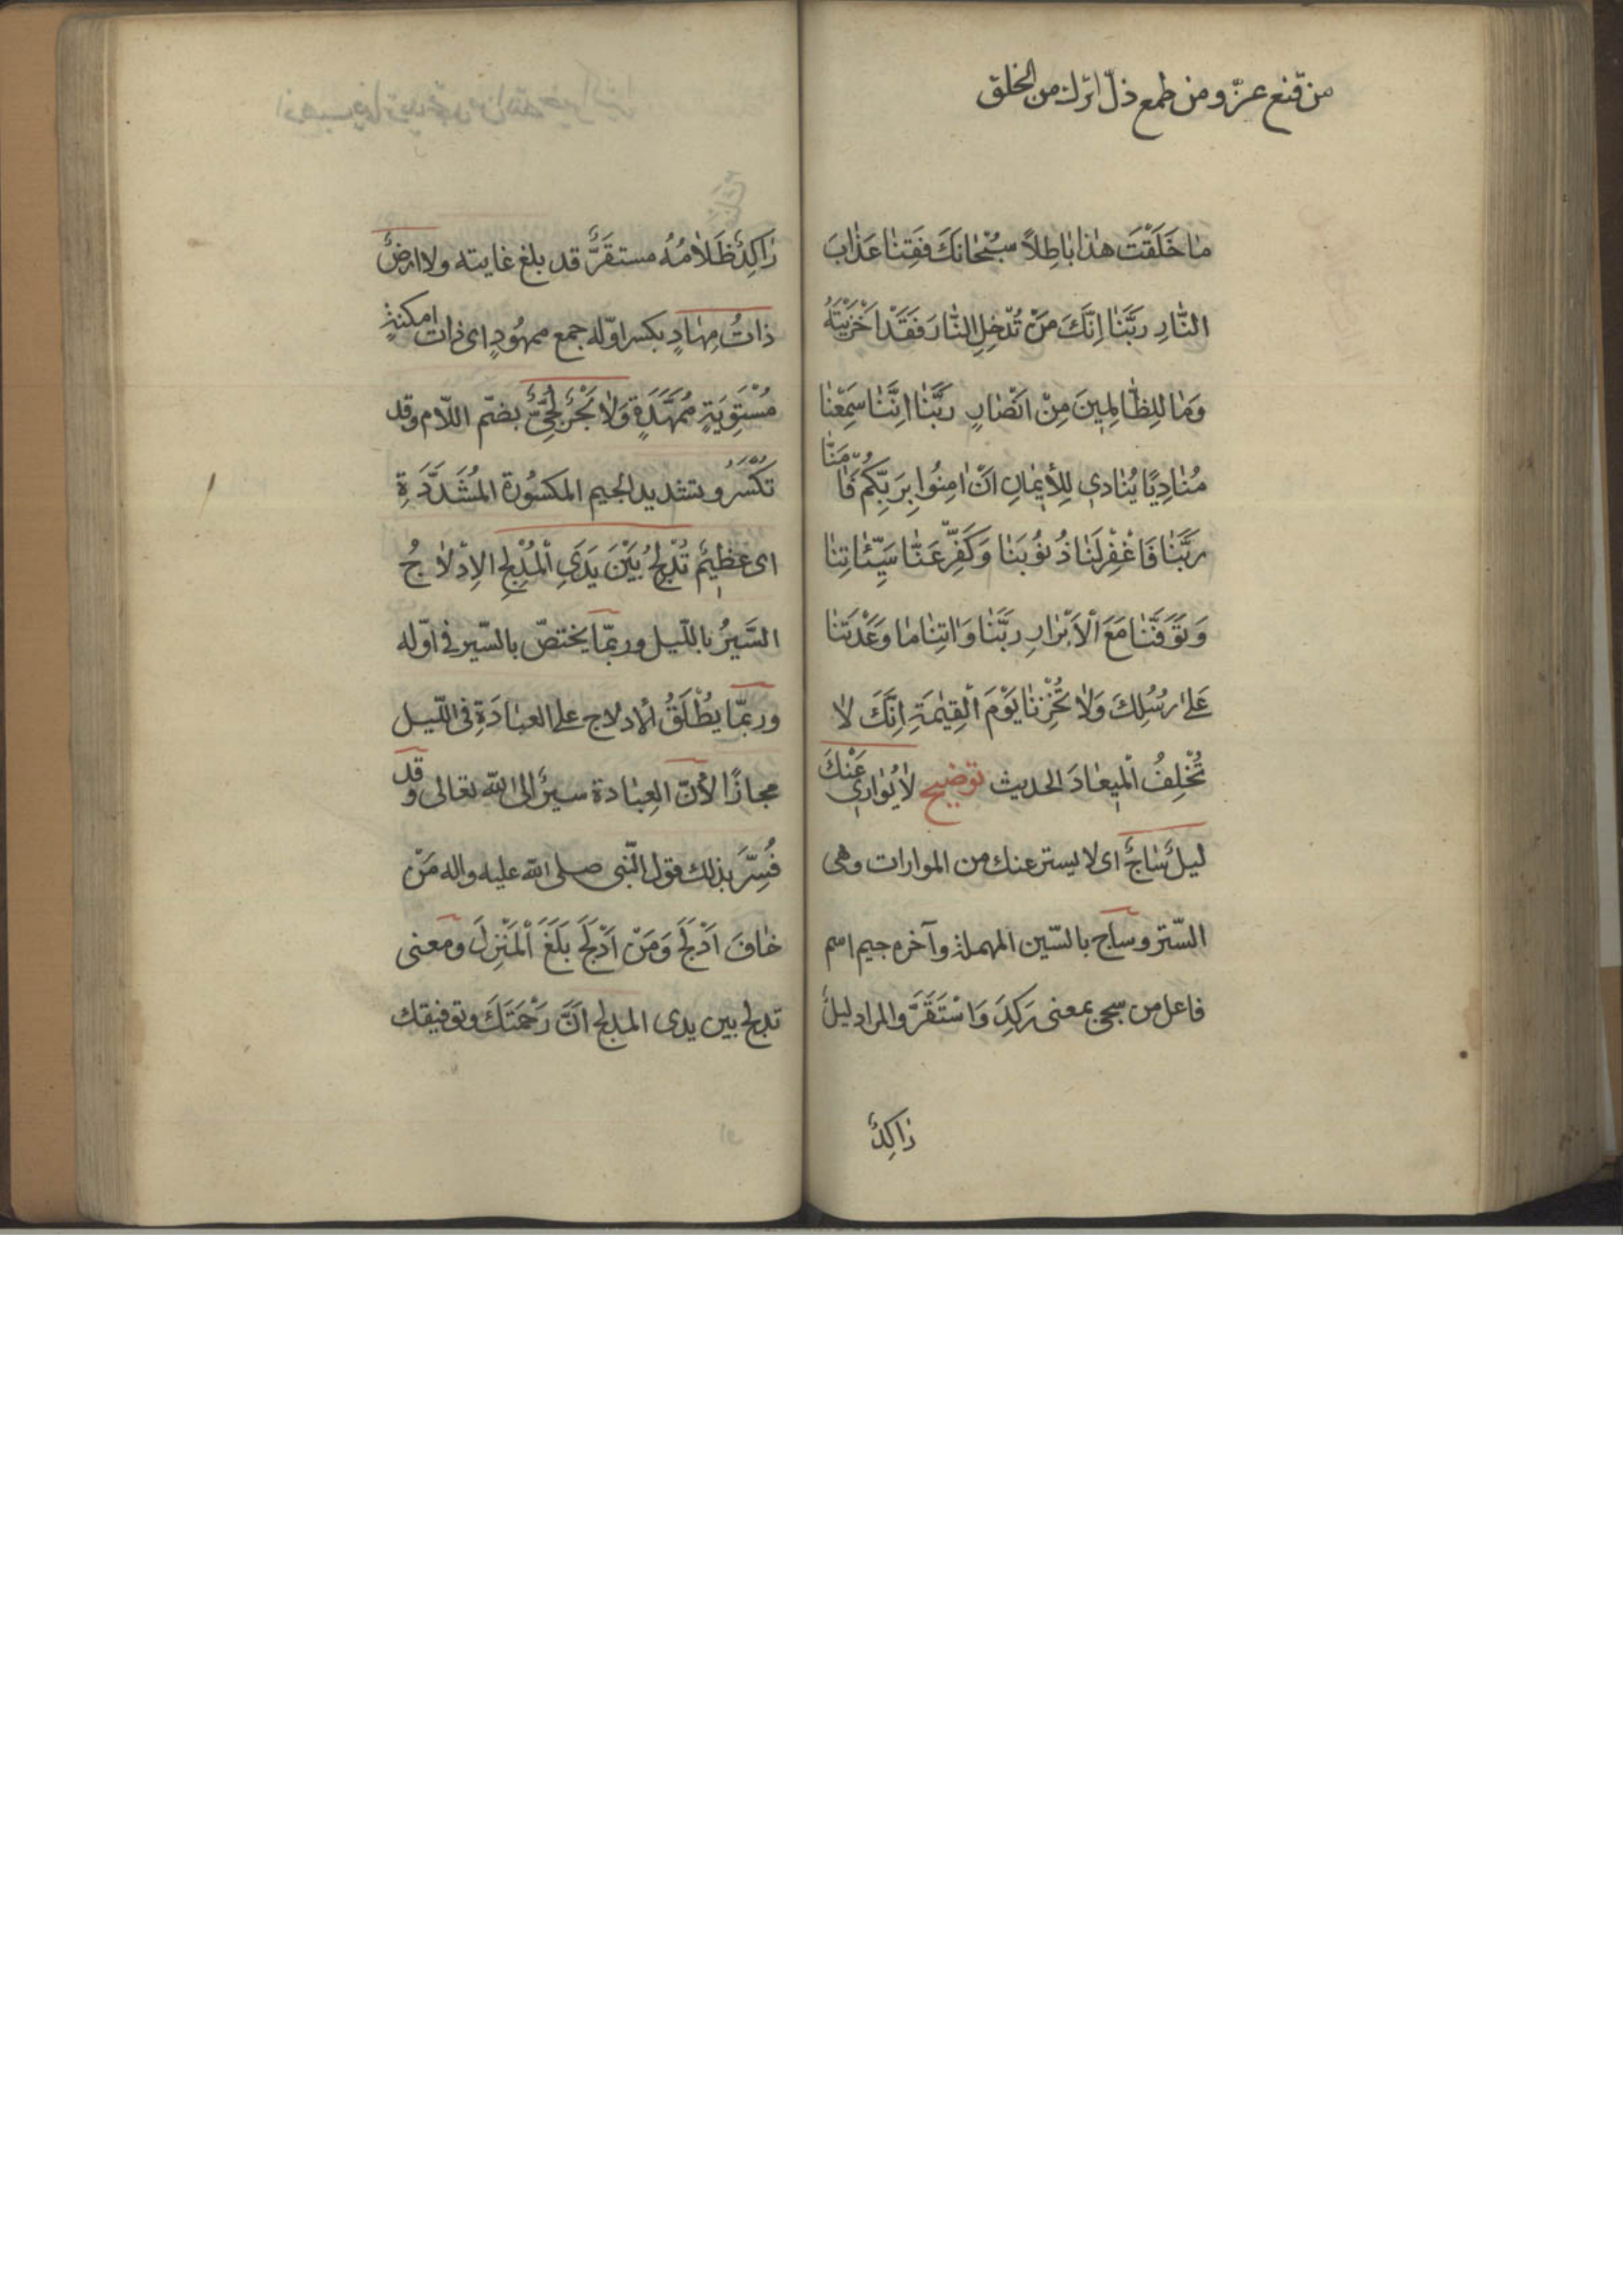 من قنع عزّ ومن طمع ذلّ اترك من الخلق
مٰا خَلَقْتَ هٰذٰا بٰاطِلاً سُبْحٰانَكَ فَقِنٰا عَذٰابَ
النّٰارِ رَبَّنٰا اِنَّكَ مَنْ تُدْخِلِ النّٰارَ فَقَدْ اَخْزَيْتَهُ
وَمٰا لِلظّٰالِمِينَ مِنْ اَنْصٰارٍ رَبَّنٰا اِنَّنٰا سَمِعْنٰا
مُنٰادِيًا يُنٰادِي لِلْأِيمٰانِ اَنْ اٰمِنُوا بِرَبِّكُمْ فَاٰمَنّٰا
رَبَّنٰا فَاغْفِرْ لَنٰا ذُنُوبَنٰا وَكَفِّرْ عَنّٰا سَيِّئٰاتِنٰا
وَتَوَفَّنٰا مَعَ الْاَبْرٰارِ رَبَّنٰا وَاٰتِنٰا مٰا وَعَدْتَنٰا
عَلىٰ رُسُلِكَ وَلاٰ تُخْزِنٰا يَوْمَ الْقِيٰمَةِ اِنَّكَ لاٰ
تُخْلِفُ الْمِيعٰادَ الحديث توضيح لاٰ يُوٰارِي عَنْكَ
ليلٌ سٰاجٌ اى لا يستر عنك من الموارات وهى
السّتر وساج بالسّين المهملة وآخره جيم اسم
فاعل من سجى بمعنى رَكَدَ وَاسْتَقَرَّ والمراد ليلٌ
رٰاكِدٌ
رٰاكِدٌ ظَلاٰمُهُ مستقَرٌّ قد بلغ غايته ولا ارضٌ
ذاتُ مِهٰادٍ بكسر اوّله جمع ممهُودٍ اى ذات امكنةٍ
مُسْتَوِيَةٍ مُمَهَّدَةٍ وَلاٰ بَحْرٌ لُجِّيٌّ بضمّ اللّام وقد
تُكْسَرُ وبتشديد الجيم المكسُورة المُشَدَّدَةِ
اى عَظِيمٌ تُدْلِجُ بَيْنَ يَدَيِ الْمُدْلِجِ الاِدْلاٰجُ
السَّيرُ باللّيل وربمّا يختصّ بالسّير فى اوّله
وربمّا يُطْلَقُ الادلاج على العبٰادَةِ فى اللّيل
مجازًا لأنّ العِبٰادة سيرٌ الى اللّه تعالى وقد
فُسِّرَ بذلك قول النّبى صلى اللّه عليه واله مَنْ
خٰافَ اَدْلَجَ وَمَنْ اَدْلَجَ بَلَغَ الْمَنْزِلَ ومعنى
تدلج بين يدى المدلج انَّ رَحْمَتَكَ وتوفيقك